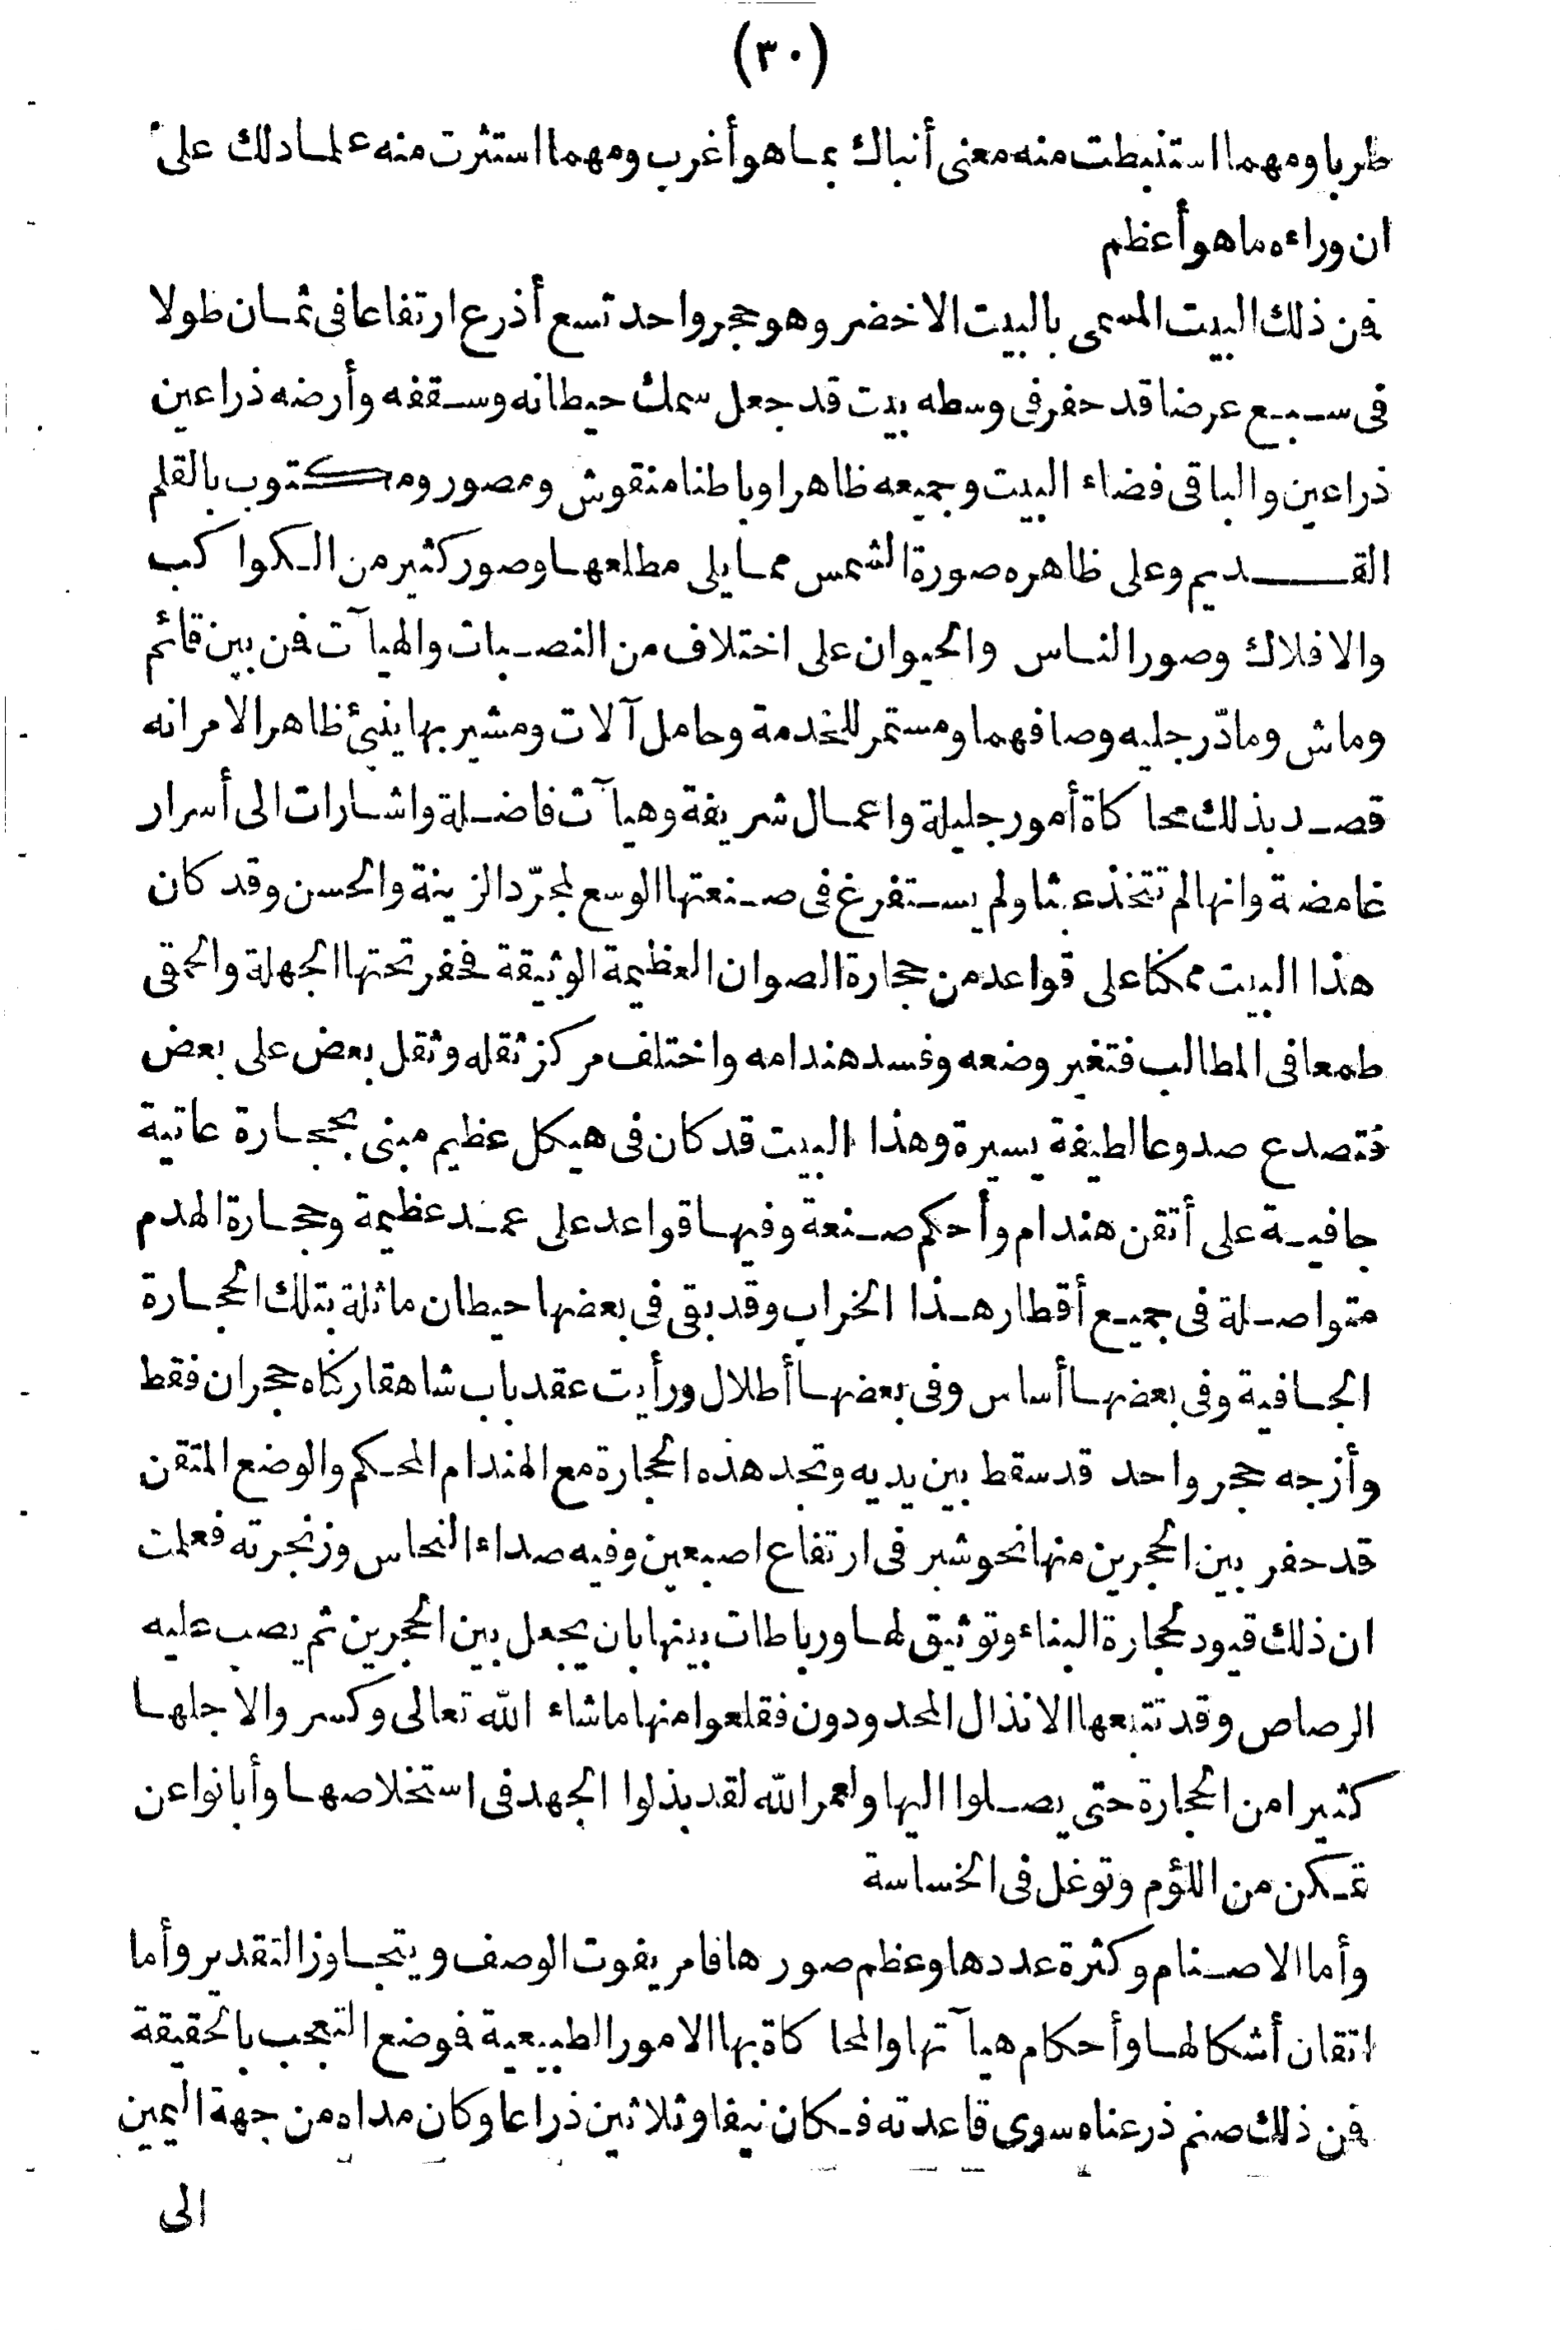 (٣٠)
طربا ومهما استنبطت منه معنى أنباك بما هو أغرب ومهما استثرت منه علما دلك على
ان وراءه ما هو أعظم
فمن ذلك البيت المسمى بالبيت الاخضر وهو حجر واحد تسع أذرع ارتفاعا فى ثمان طولا
فى سبع عرضا قد حفر فى وسطه بيت قد جعل سمك حيطانه وسقفه وأرضه ذراعين
ذراعين والباقى فضاء البيت وجميعه ظاهرا وباطنا منقوش ومصور ومكتوب بالقلم
القديم وعلى ظاهره صورة الشمس مما يلى مطلعها وصور كثير من الكواكب
والافلاك وصور الناس والحيوان على اختلاف من النصبات والهيآت فمن بين قائم
وماش ومادّ رجليه وصافهما ومستمر للخدمة وحامل آلات ومشير بها ينبئ ظاهر الامر انه
قصد بذلك محاكاة أمور جليلة واعمال شريفة وهيآت فاضلة واشارات الى أسرار
غامضة وانها لم تتخذ عبثا ولم يستفرغ فى صنعتها الوسع لمجرّد الزينة والحسن وقد كان
هذا البيت ممكنا على قواعد من حجارة الصوان العظيمة الوثيقة فحفر تحتها الجهلة والحمقى
طمعا فى المطالب فتغير وضعه وفسد هندامه واختلف مركز ثقله وثقل بعض على بعض
فتصدع صدوعا لطيفة يسيرة وهذا البيت قد كان فى هيكل عظيم مبنى بحجارة عاتية
جافية على أتقن هندام وأحكم صنعة وفيها قواعد على عمد عظيمة وحجارة الهدم
متواصلة فى جميع أقطار هذا الخراب وقد بقى فى بعضها حيطان ماثلة بتلك الحجارة
الجافية وفى بعضها أساس وفى بعضها أطلال ورأيت عقد باب شاهقا ركناه حجران فقط
وأزجه حجر واحد قد سقط بين يديه وتجد هذه الحجارة مع الهندام المحكم والوضع المتقن
قد حفر بين الحجرين منها نحو شبر فى ارتفاع اصبعين وفيه صداء النحاس وزنجرته فعلمت
ان ذلك قيود لحجارة البناء وتوثيق لها ورباطات بينها بان يجعل بين الحجرين ثم يصب عليه
الرصاص وقد تتبعها الانذال المحدودون فقلعوا منها ما شاء الله تعالى وكسروا لاجلها
كثيرا من الحجارة حتى يصلوا اليها ولعمر الله لقد بذلوا الجهد فى استخلاصها وأبانوا عن
تمكن من اللؤم وتوغل فى الخساسة
وأما الاصنام وكثرة عددها وعظم صورها فامر يفوت الوصف ويتجاوز التقدير وأما
اتقان أشكالها وأحكام هيآتها والمحاكاة بها الامور الطبيعية فموضع التعجب بالحقيقة
فمن ذلك صنم ذرعناه سوى قاعدته فكان نيفا وثلاثين ذراعا وكان مداه من جهة اليمين
الى